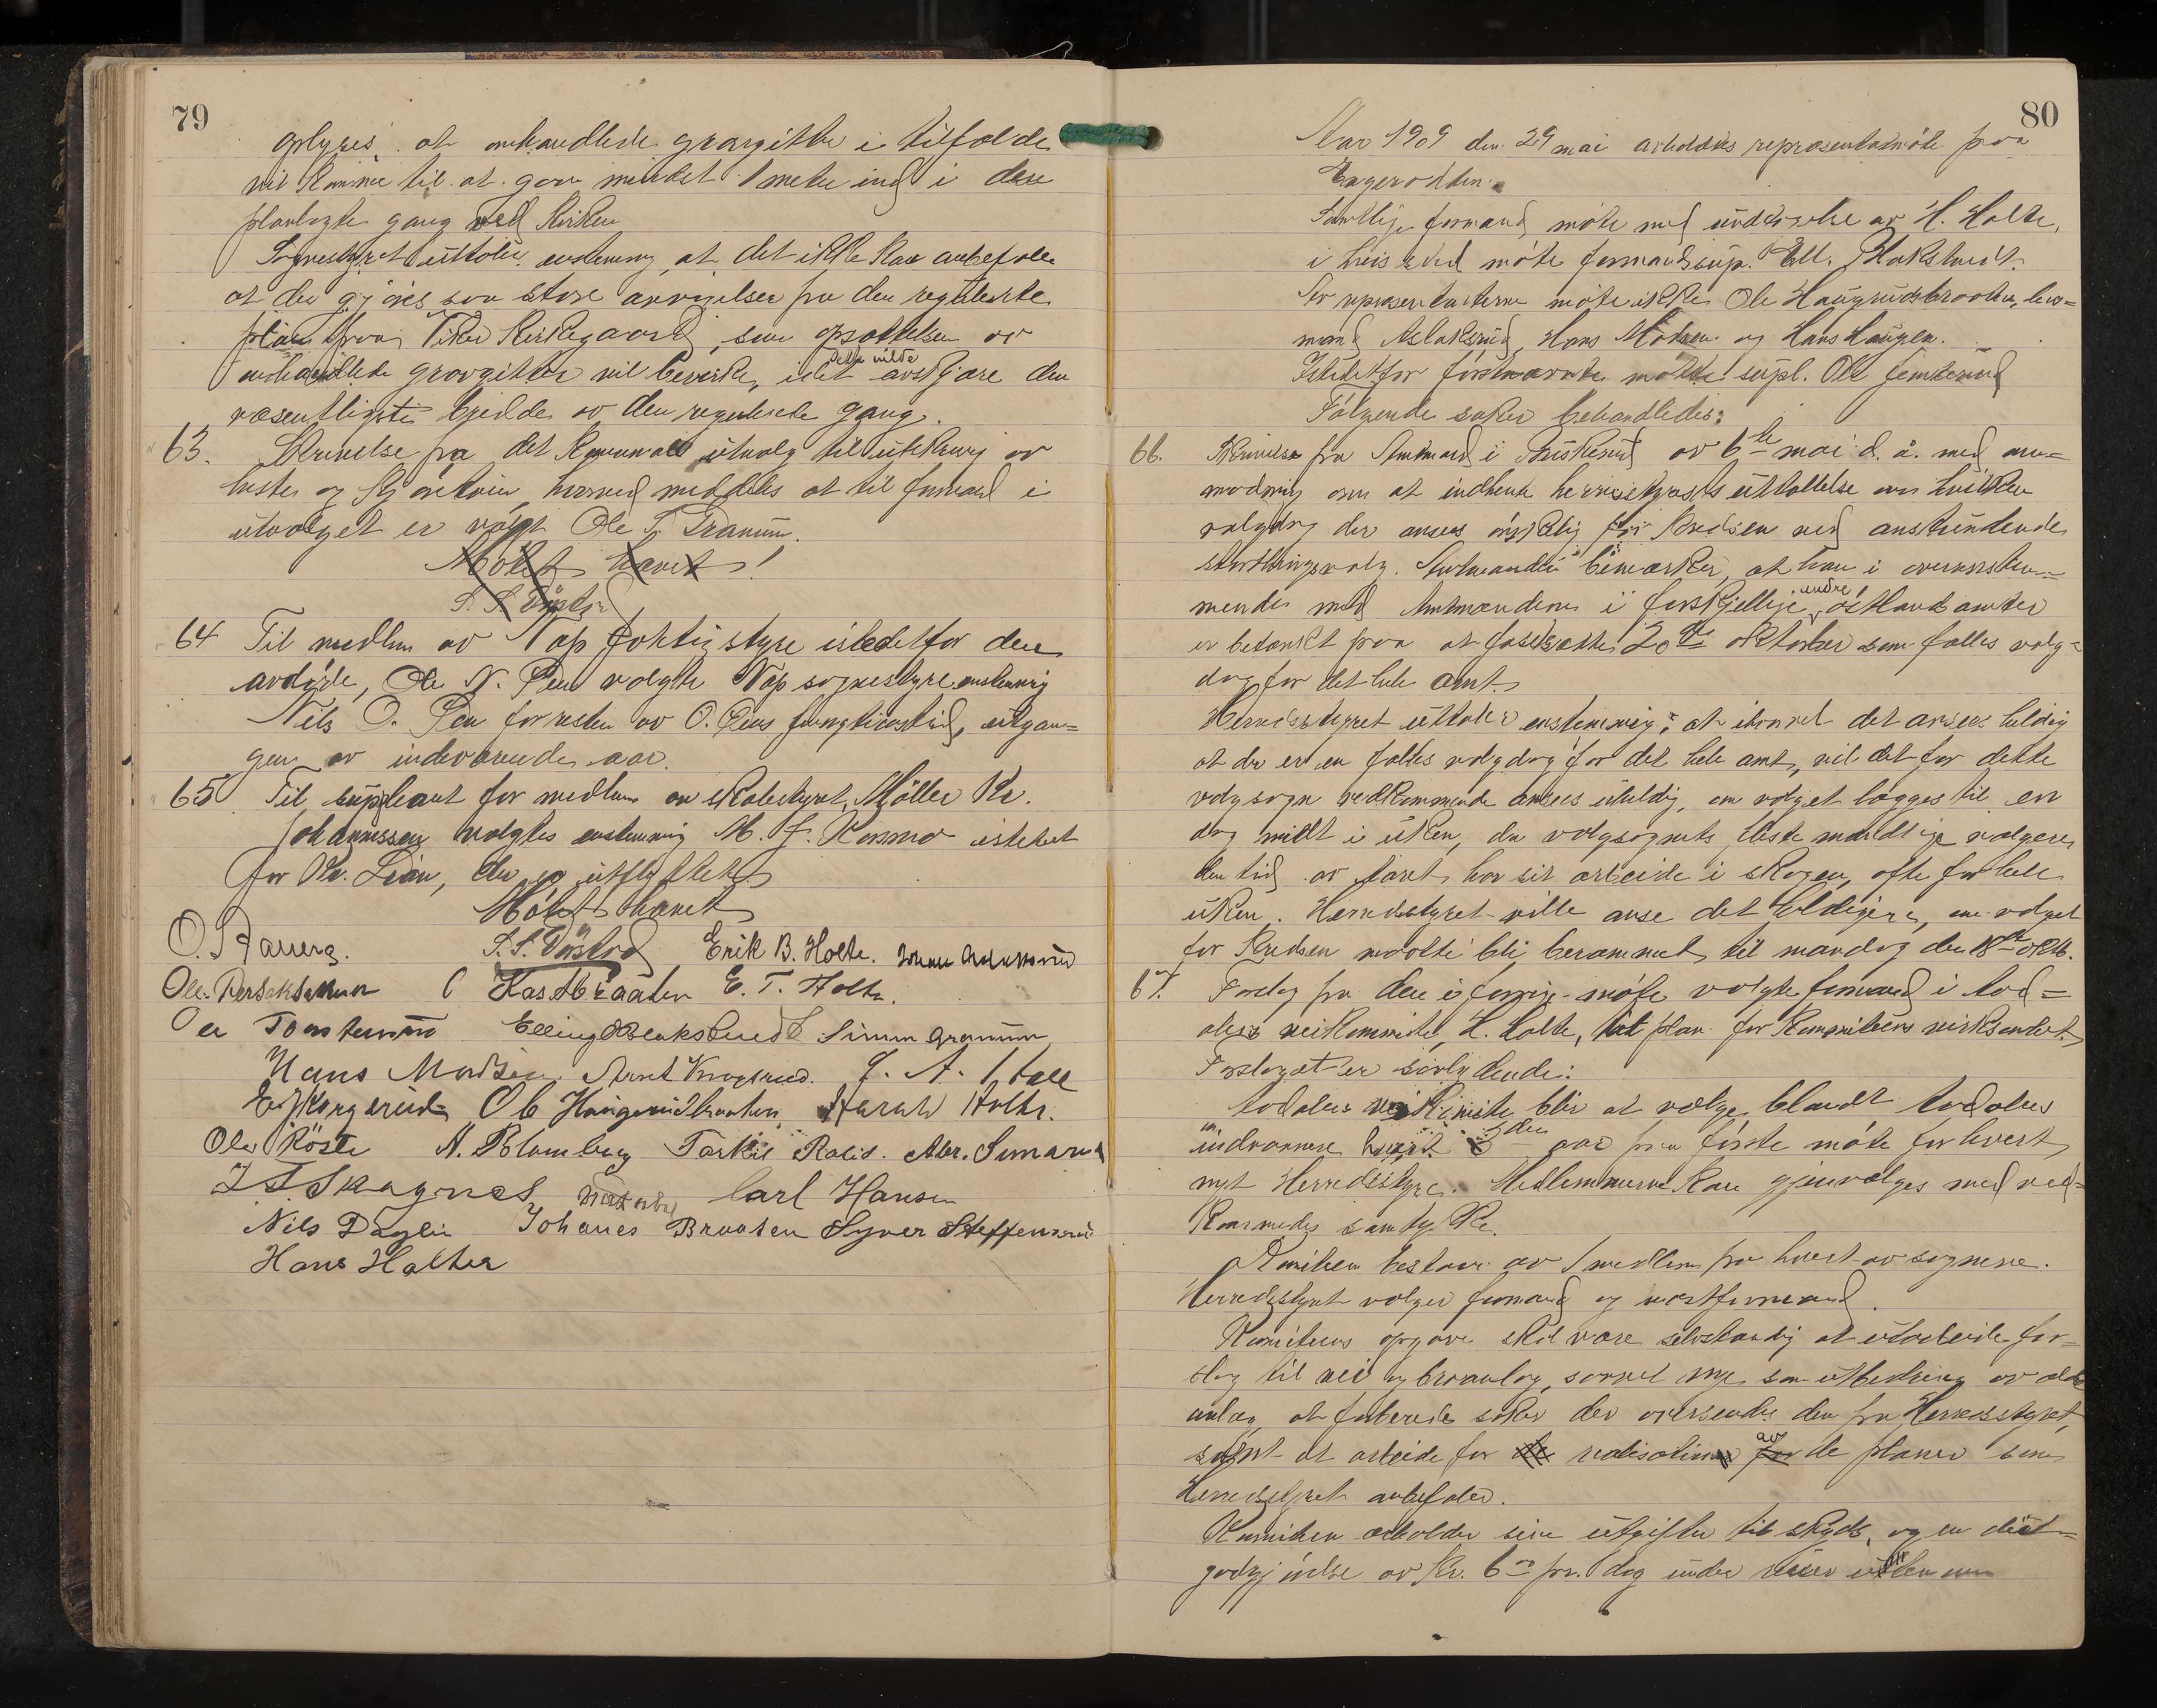 79
oplyses, at omhandlede gravgitter i tilfælde
vil komme til at gaa mindst 1 meter ind i den
planlagte gang ved kirken
Sognestyret uttaler enstemmig, at det ikke kan anbefale
at der gjøres saa store avvigelser fra den regulerte
plan for kirkegaard, som opsættelsen av
omhandlede gravgitter vil bevirke, idet dette vilde avskjære den
væsentligste bredde av den regulerede gang.
63. Skrivelse fra det kommunale utvalg til utskrivning av
heste og kjøretøier, hvorved meddeles at til formand i
utvalget er valgt Ole T. Granum.
Møtet hævet!
64 Til medlem av Nap fattigstyre istedetfor den
avdøde, Ole N. Lien valgte Nap sognestyre enstemmig
Nils O. Lien for resten av O. Liens funktionstid, utgan=
gen av indeværende aar.
65 Til supleant for medlem av skolestyret, Møller Kr.
Johannessen valgtes enstemmig M. J. Kosmo istedet
for Kr. Lian, der er utflyttet
Møtet hævet
Erik B. Holte.
Kast Braaten E. T. Holte.
Simen Granum
Hans Madsen
Ole Haugerudbraaten
Ole Røste A. Blomberg Tarkil Carl Hansen
Nils Johanes Braaten Syver Steffensrud
Hans Halter
80
Aar 1909 den 29 mai avholdtes repræsentantmøte paa
Samtlige formænd møte med undtagelse av H. Holte,
i hvis sted møte formandssup. Ell. Blakstvedt.
Av repræsentanterne møte ikke Ole Haugerudbraaten, lens=
mand Aslaksrud, Hans Madsen og Hans Haugen.
Istedetfor førstnævnte møtte supl. Ole
Følgende saker behandledes:
66. Skrivelse fra Amtmand i Buskerud av 6te mai d. å. med an=
modning om at indhente herredsstyrets uttallelse om hvilken
valgdag der anses ønskelig for kredsen ved anstundende
stortingsvalg. Amtmanden bemærker, at han i overensstem=
mende med Amtmændene i forskjellige andre østlandsamter
er betænkt paa at fastsætte 20de oktober som fælles valg=
dag for det hele amt.
Herredsstyret uttaler enstemmig: at ihvorvel det ansees heldig
at der er en fælles valgdag for det hele amt, vil det for dette
valgsogn vedkommende ansees uheldig, om valget lægges til en
dag midt i uken, da valgsognets fleste mandlige vælgere
den tid av aaret har sit arbeide i skogen, ofte for hele
uken. Herredsstyret ville anse det heldigere, om valget
for kredsen maatte bli berammet til mandag den 18de oktb.
67. Forslag fra den i forrige møte valgte formand i
veikomite, H. Holte, til plan for komiteens virksomhet.
Forslaget er saalydende:
veikomite blir at vælge blandt
indvaanere hvert 3die aar paa første møte for hvert
nyt Herredsstyre. Medlemmerne kan gjenvælges med ved=
kommendes samtykke.
Komiteen bestaar av 1 medlem fra hvert av sognene.
Herredsstyret vælger formand og næstformand.
Komiteens opgave skal være selvstændig at utarbeide for=
slag til vei og broanlæg, saavel nye som utbedring av ældre
anlæg, at forberede saker der oversendes den fra Herredsstyret,
samt at arbeide for realisation av de planer som
Herredsstyret anbefaler.
Komiteen erholder sine utgifter til skyds, og en diæt=
godtgjørelse av kr. 6 00 pr. dag under reiser